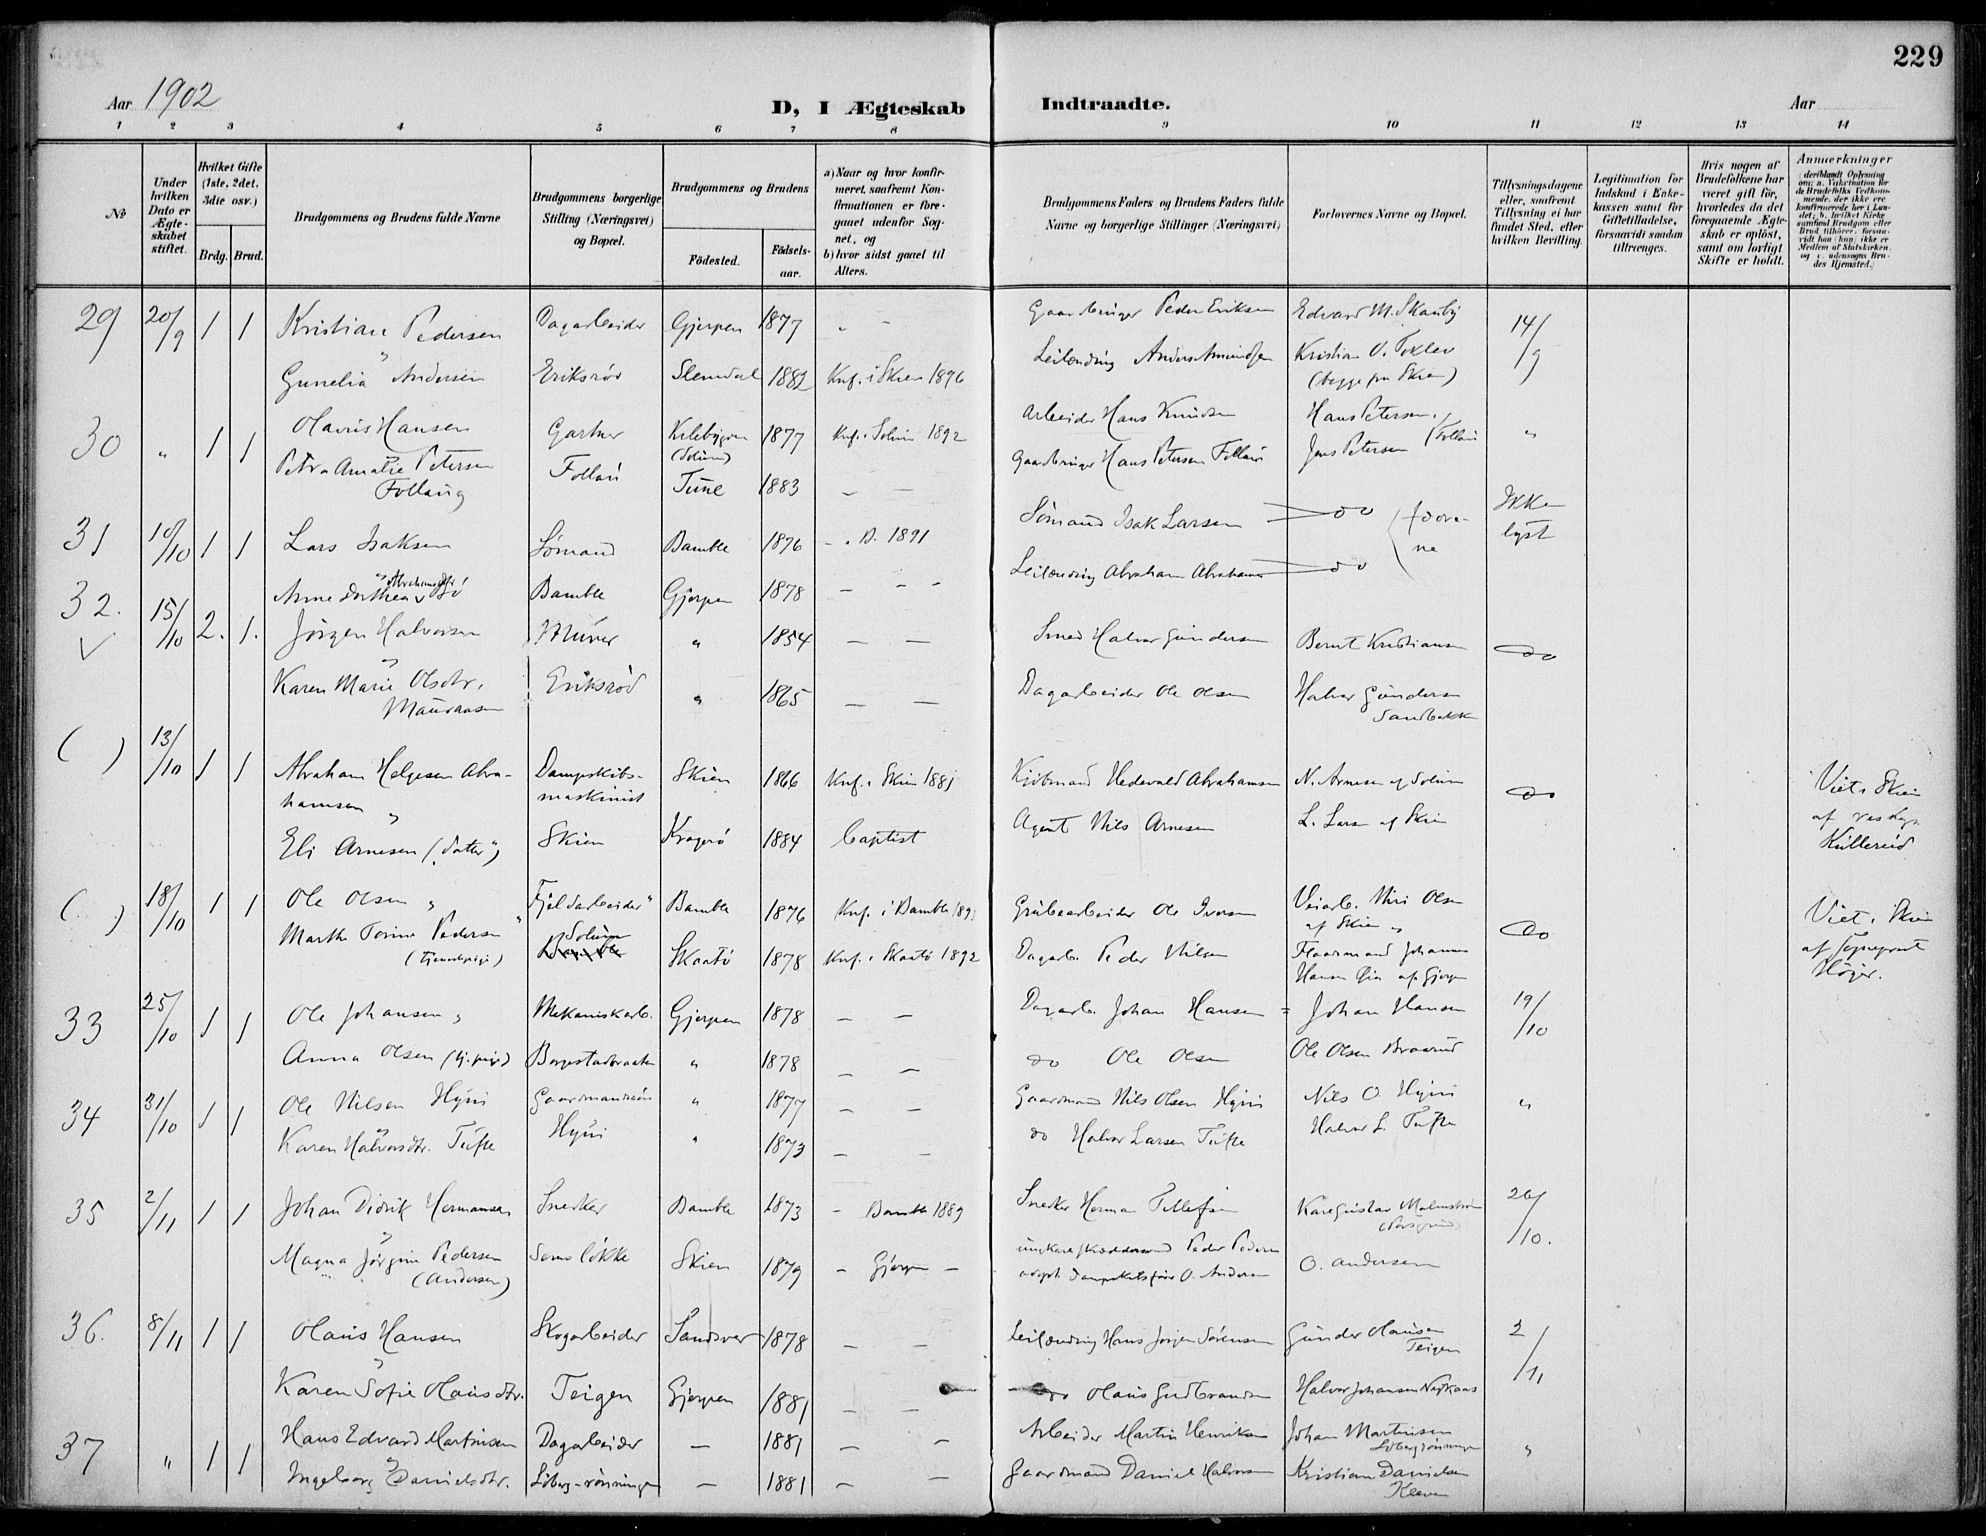 229
Aar 1902
D, I Ægteskab Indtraadte.
Aar
1 2 3 4 5 6 7 8 9 10 11 12 13 14
No
Under hvilken Dato er Ægteskabet stiftet.
Hvilket Gifte (1ste, 2det, 3die osv.)
Brdg. Brud.
Brudgommens og Brudens fulde Navne
Brudgommens borgerlige Stilling (Næringsvei) og Bopæl.
Brudgommens og Brudens
Fødested.
Fødselsaar.
a) Naar og hvor konfirmeret, saafremt Konfirmationen er foregaaet udenfor Sognet, og
b) hvor sidst gaaet til Alters.
Brudgommens Faders og Brudens Faders fulde Navne og borgerlige Stillinger (Næringsvei)
Forlovernes Navne og Bopæl.
Tillysningsdagene eller, saafremt Tillysning ei har fundet Sted, efter hvilken Bevilling.
Legitimation for Indskud i Enkekassen samt for Giftetilladelse, forsaavidt saadan tiltrænges.
Hvis nogen af Brudefolkene har været gift før, hvorledes da det foregaaende Ægteskab er opløst, samt om lovligt Skifte er holdt.
Anmærkninger
29 20/9 1 1 Kristian Pedersen Dagarbeider Gjerpen 1877 " - Gaardbruger Peder Eriksen Edvard M. Skauby 14/9
Gunelia Andersen Eriksrød Slemdal 1882 Knf. i Skien 1896 Leilænding Anders Amundsen Kristian O. Foklev
(begge fra Skien)
30 " 1 1 Olavus Hansen Gartner Kilebygden (Solum) 1877 Knf. i Solum 1892 Arbeider Hans Knudsen Hans Petersen "
Petra Amalie Petersen Follaug Follau Tune 1883 - - Gaardbruger Hans Petersen Follau Jens Petersen (Follau
31 10/10 1 1 Lars Isaksen Sømand Bamble 1876 - . B. 1891 Sømand Isak Larsen do Ikke lyst
Anne Dorthea Abrahamsdtr. Bø Bamble Gjerpen 1878 - - Leilænding Abraham Abrahams do
32. 15/10 2. 1. Jørgen Halvorsen Murer " 1854 - - Smed Halvor Gundersen Bernt Kristiansen do
Karen Marie Olsdtr. Eriksrød " 1865 - - Dagarbeider Ole Olsen Halvor Gundersen
Sandbakk
( ) 13/10 1 1 Abraham Helgesen Abrahamsen Dampskibsmaskinist Skien 1866 Knf. i Skien 1881 Kjøbmand Hedevald Abrahamsen N. Arnesen af Solum do
Eli Arnesen (datter) Skien Kragerø 1884 baptist Agent Nils Arnesen L. Larsen af Skien
Viet i Skien
af res. kap.
Kullerud
( ) 18/10 1 1 Ole Olsen Fjeldarbeider Bamble 1876 Knf. i Bamble Grubearbeider Ole Iversen Veiarb. Olsen af Skien do
Marthe Torine Pedersen (tjenestepige) Solum Skaatø 1878 Knf. i Skaatø 1892 Dagarb. Peder Nilsen Johannes Hansen af Gjerpen
Viet i Skien
af Sogneprest
Høyer.
33 25/10 1 1 Ole Johansen Mekaniskarb. Gjerpen 1878 - - Dagarb. Johan Hansen = Johan Hansen 19/10
Anna Olsen (tj.pige) Borgestadbraaten " 1878 - - do Ole Olsen Ole Olsen
34 31/10 1 1 Ole Nilsen Hyni Gaardmandssøn " 1877 - - Gaardmand Nils Olsen Hyni Nils O. Hyni "
Karen Halvorsdtr. Tufte Hyni " 1873 - - do Halvor Larsen Tufte Halvor L. Tufte
35 2/11 1 1 Johan Didrik Hermansen Snedker Bamble 1873 - Bamble 1889 Snedker Herman Tellefsen Karl Gustav Malmstrøm 26/10.
(Porsgrund)
Magna Jørgine Pedersen (Andersen) Semsløkke Skien 1879 - Gjerpen - ungkarl skræddersvend Peder Pedersen
adopt. dampskibsfører O. Andersen O. Andersen
36. 8/11 1 1 Olaus Hansen Skogarbeider Sandsver 1878 - - Leilænding Hans Jørgen Sørensen Gunder Olausen Teigen 2/11
Karen Sofie Olausdtr. Teigen Gjerpen 1881 - - do Olaus Gudbrandsen Halvor Johansen
37 " 1 1 Hans Edvard Martinsen Dagarbeider - 1881 - - Arbeider Martin Henriksen Johan Martinsen "
Ingeborg Danielsdtr. Løberg-rønningen - 1881 - - Gaardmand Daniel Halvorsen Kristian Danielsen
Kleven